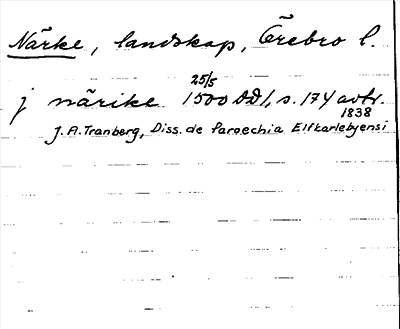 Närke, landskap, Örebro l.
25/5
j närike 1500 DD 1, s. 174 avtr.
1838
J. A. Tranberg, Diss. de Paroechia Elfkarlebyensi